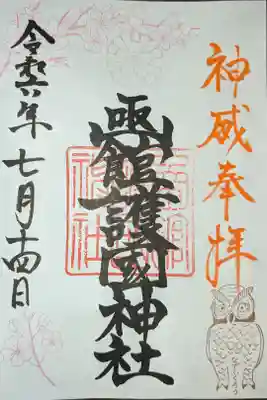 神威奉拝
凾館護國神社
令和六年七月十四日